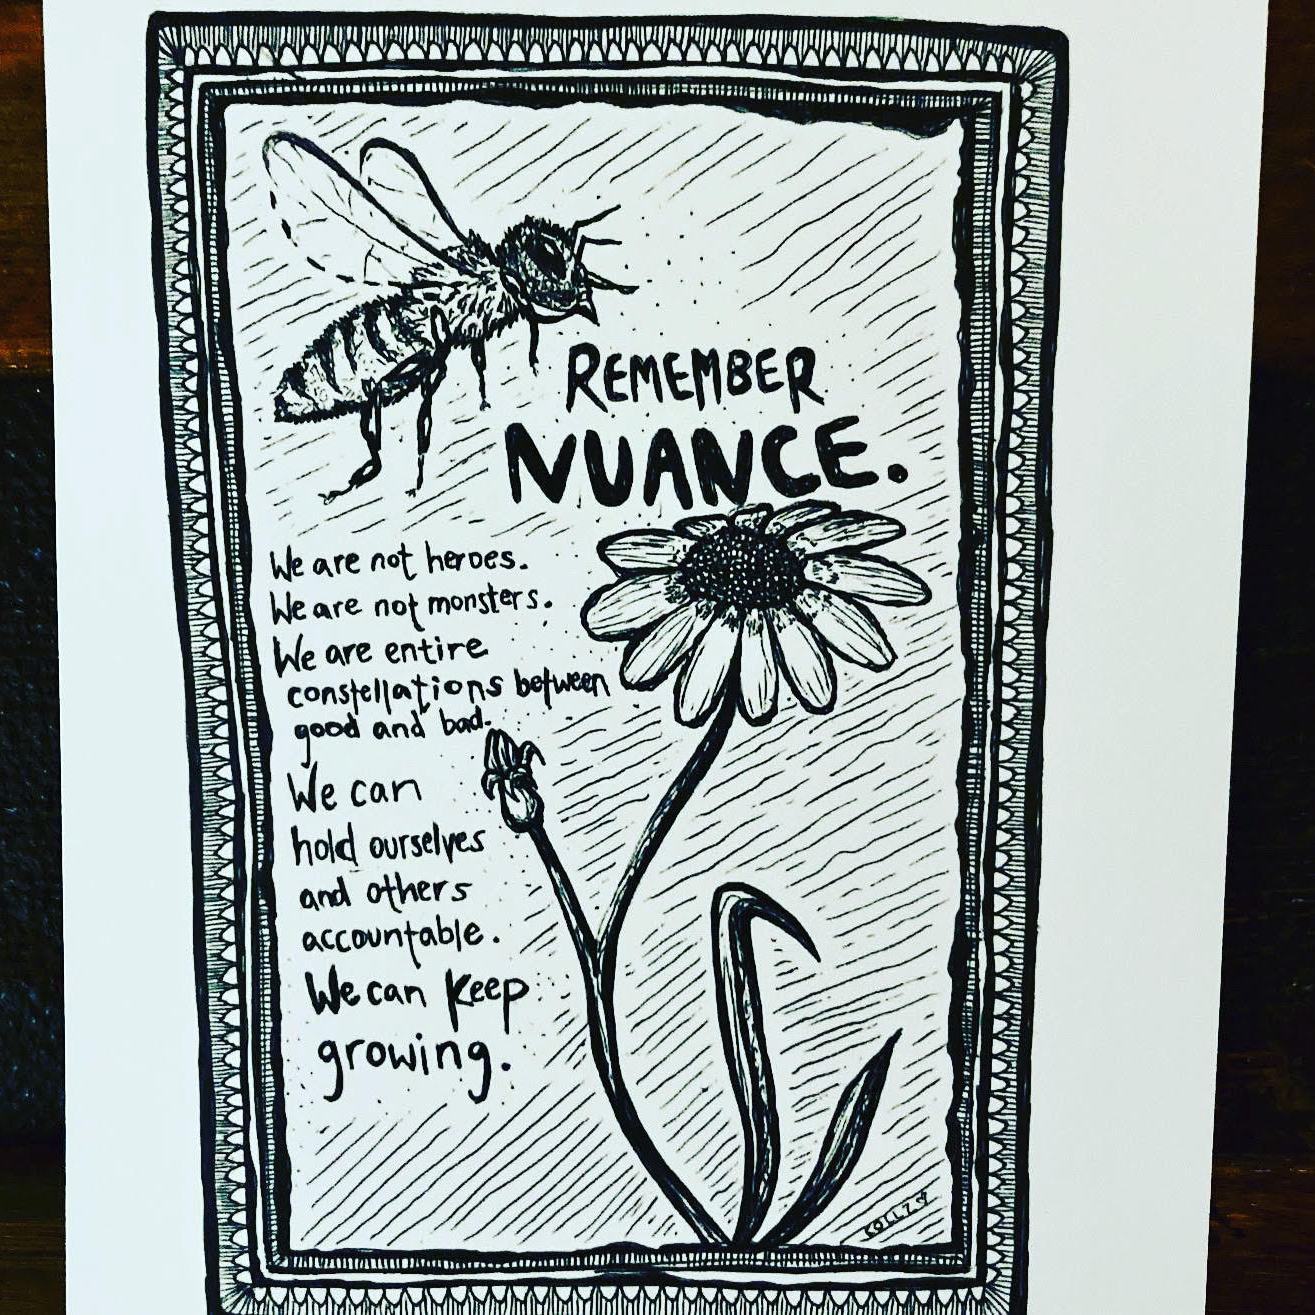 REMEMBER
NUANCE.
We are not heroes.
We are not monsters.
We are entire
constellations between
good and bad.
We can
hold ourselves
and others
accountable.
We can keep
growing.
COLLZ